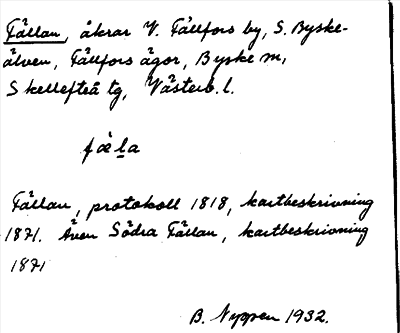 Fällan, åkrar V. Fällfors by, S. Byske-
älven, Fällfors ägor, Byske sn,
Skellefteå tg, Västerb. l.
fäla
Fällan, protokoll 1818, kartbeskrivning
1871. Även Södra Fällan, kartbeskrivning
1871
B. Nygren 1932.